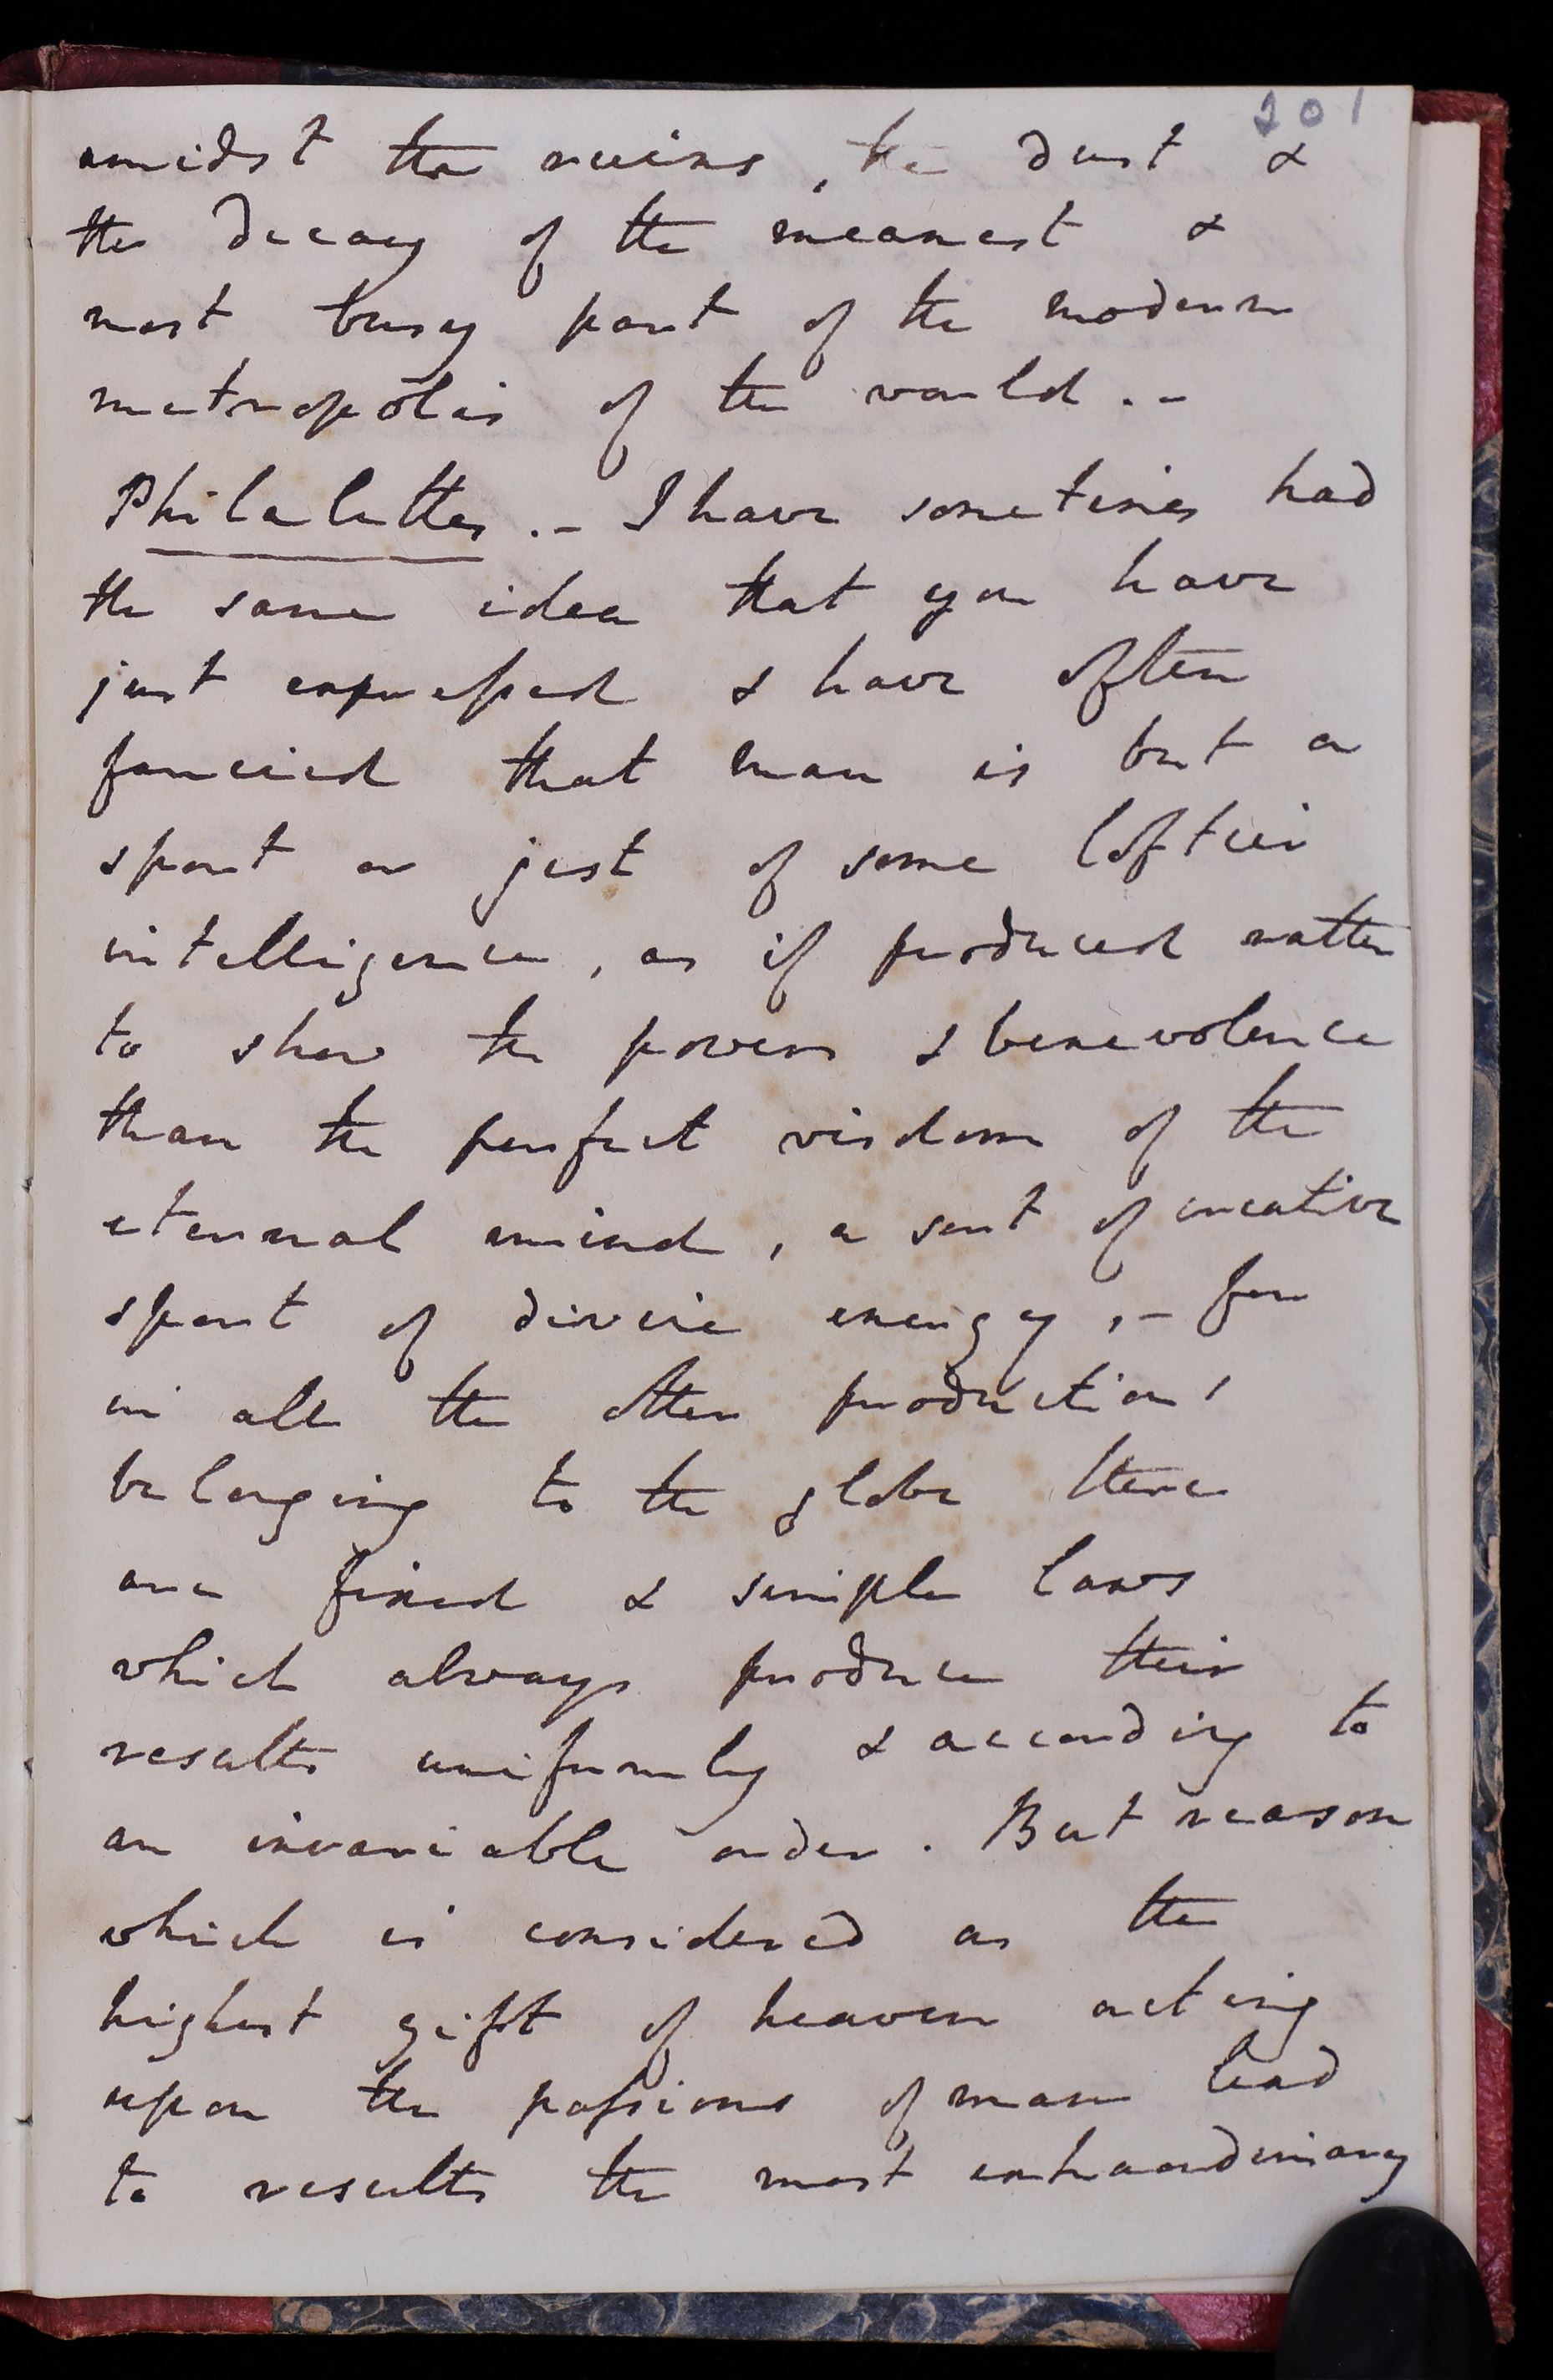 201
amidst the ruins, the dust &
the decay of the meanest &
most busy part of the modern
metropolis of the world.-
Philalethes.- I have sometimes had
the same idea that you have
just expressed & have often
fancied that man is but a
sport or jest of some loftier
intelligence, as if produced rather
to show the powers & benevolence
than the perfect wisdom of the
eternal mind, a sort of creative
sport of divine energy,- for
in all the other productions
belonging to the globe there
are fixed & simple laws
which always produce their
results uniformly & according to
an invariable order. But reason
which is considered as the
highest gift of heaven acting
upon the passions of man lead
to results the most extraordinary